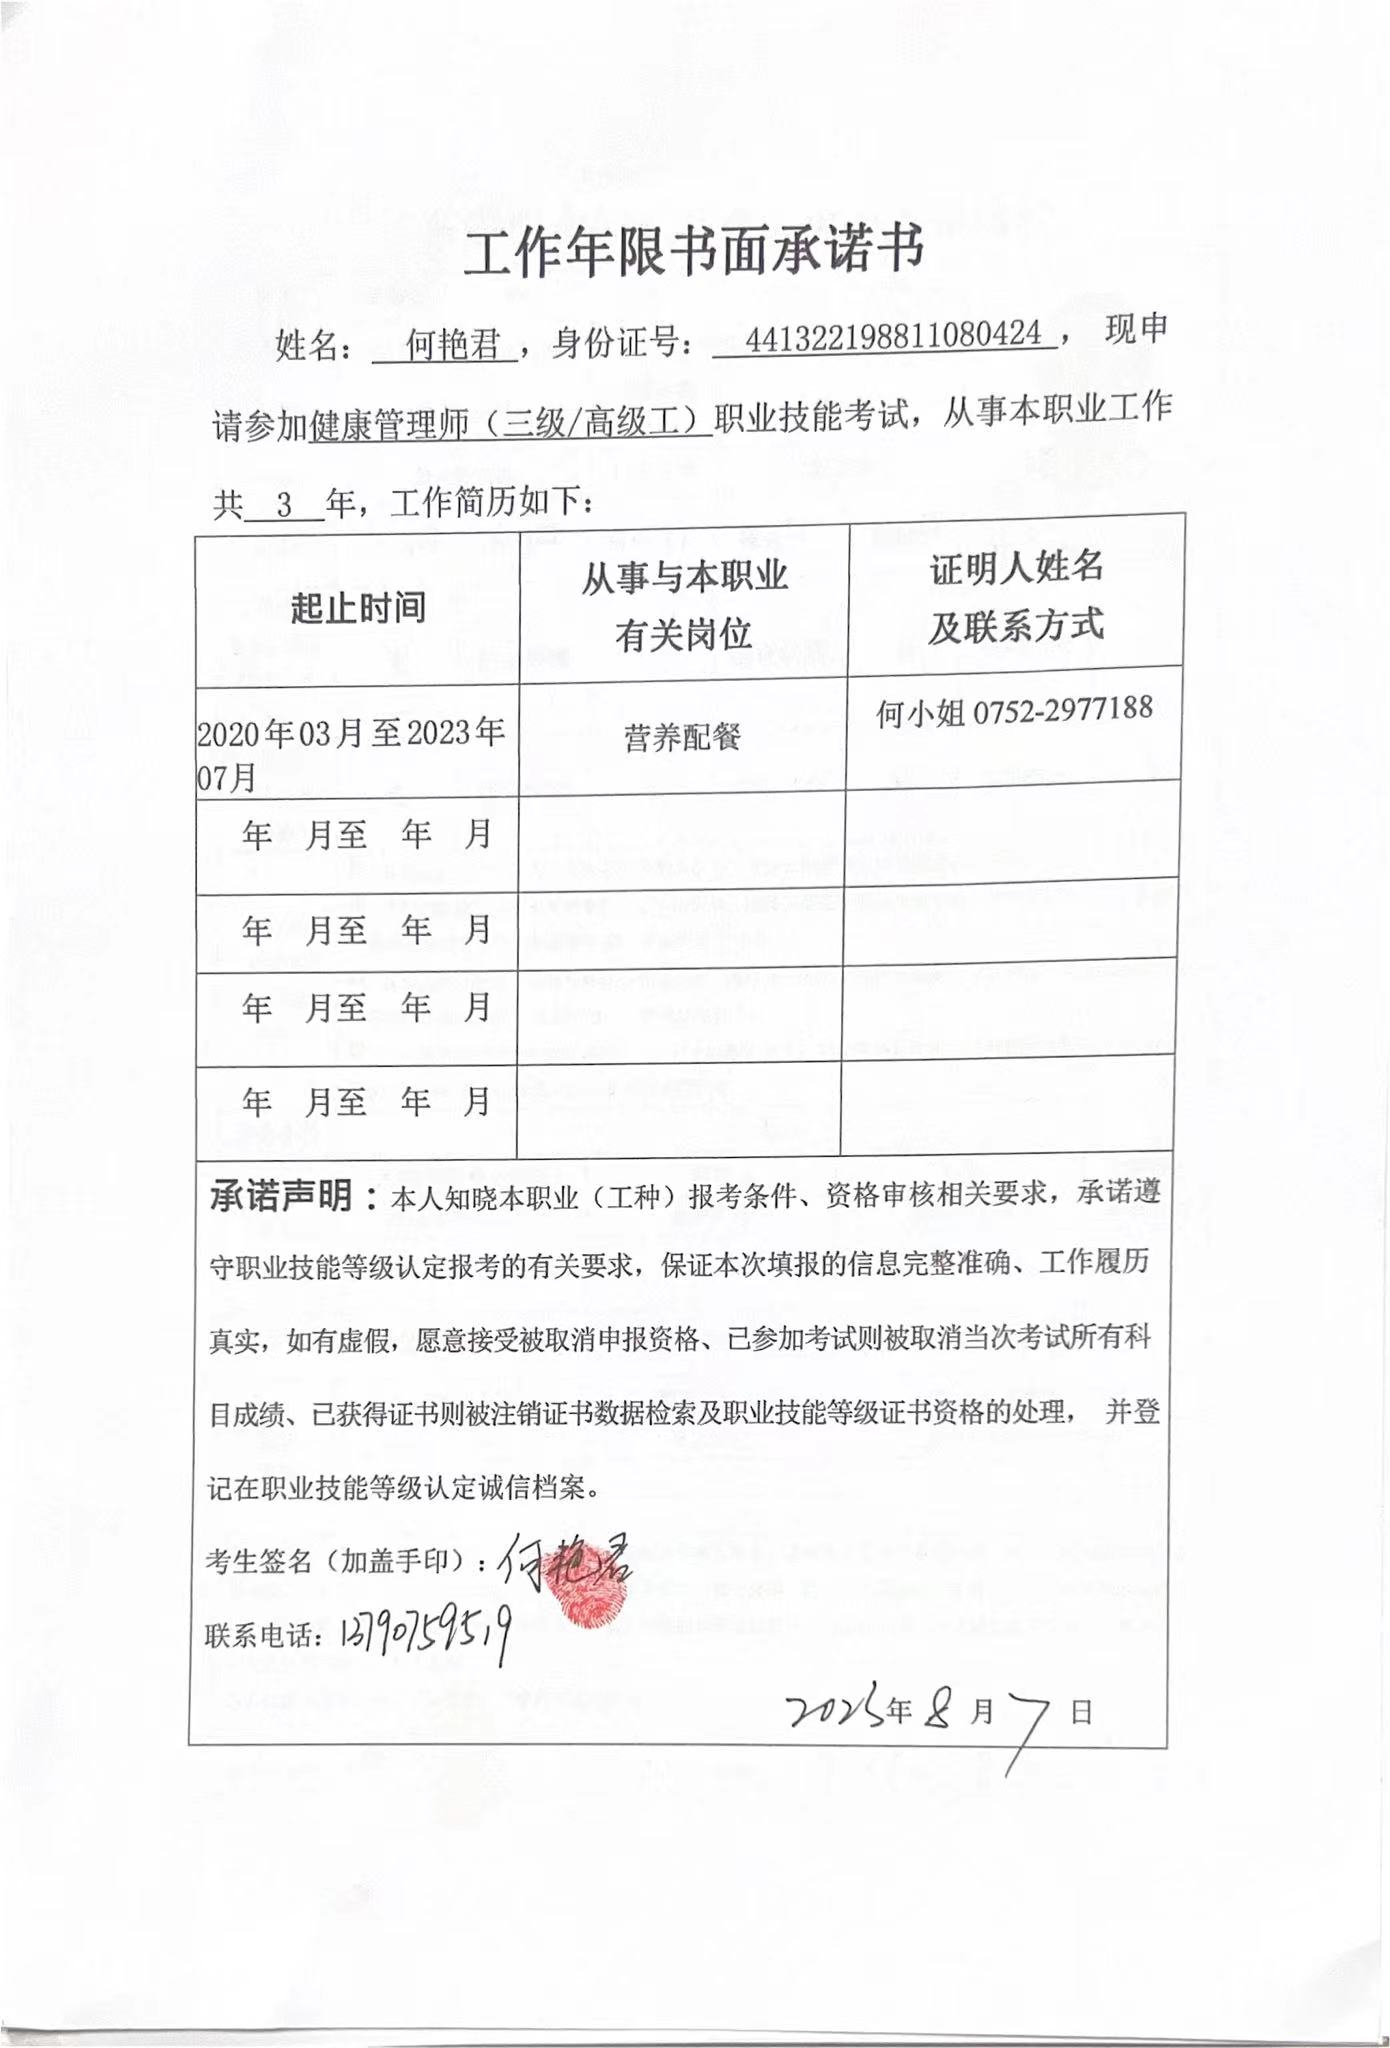 工作年限书面承诺书
姓名：何艳君，身份证号：441322198811080424，现申
请参加健康管理师（三级/高级工）职业技能考试，从事本职业工作
共 3 年，工作简历如下：
起止时间
从事与本职业
有关岗位
证明人姓名
及联系方式
2020年03月至2023年
07月
营养配餐
何小姐 0752-2977188
年 月至 年 月
年 月至 年 月
年 月至 年 月
年 月至 年 月
承诺声明：本人知晓本职业（工种）报考条件、资格审核相关要求，承诺遵
守职业技能等级认定报考的有关要求，保证本次填报的信息完整准确、工作履历
真实，如有虚假，愿意接受被取消申报资格、已参加考试则被取消当次考试所有科
目成绩、已获得证书则被注销证书数据检索及职业技能等级证书资格的处理， 并登
记在职业技能等级认定诚信档案。
考生签名（加盖手印）：何艳君
联系电话：13790759519
2023年8月7日